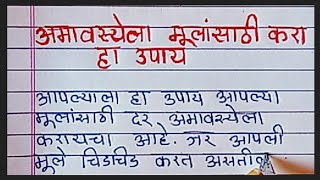 अमावस्येला मूलांसाठी करा
हा उपाय
आपल्याला हा उपाय आपल्या
मूलांसाठी दर अमावस्येला
करायचा आहे. जर आपली
मूले चिडचिड करत असतील